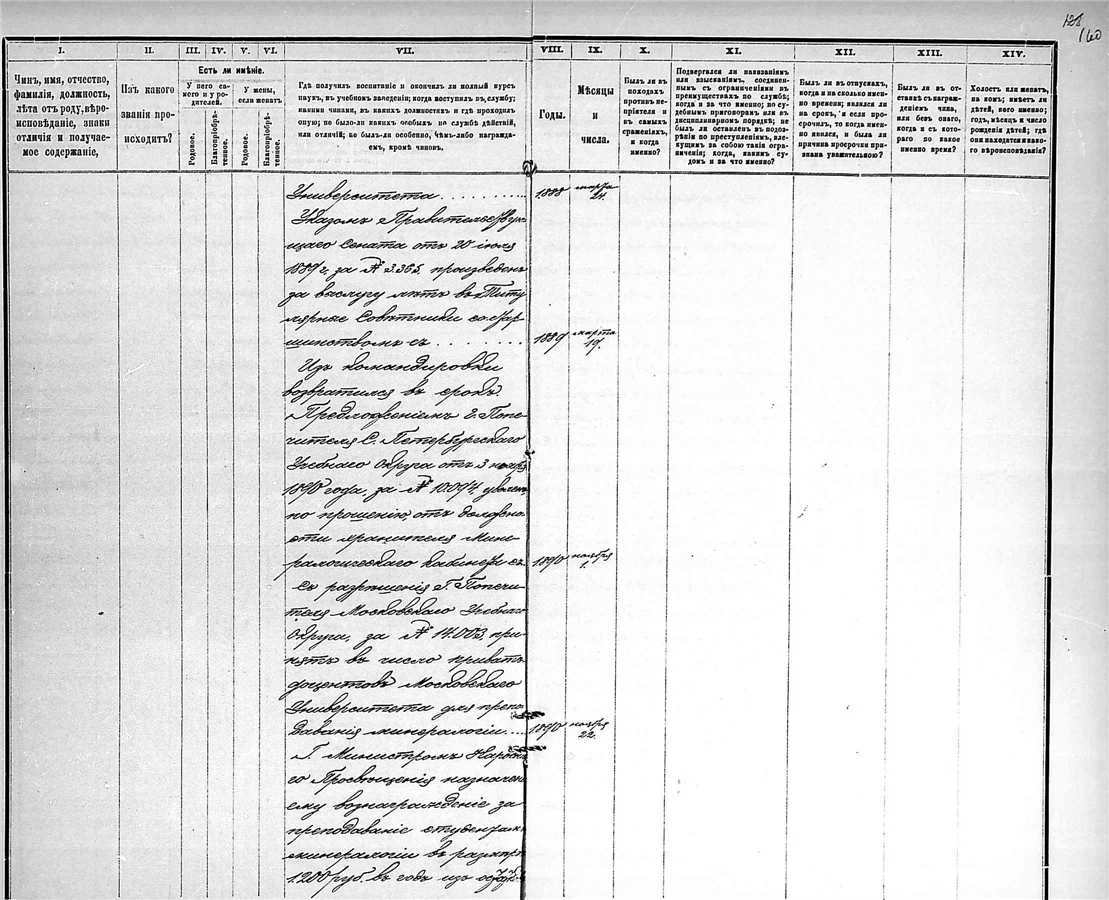 128
160
I. II. III. IV. V. VI. VII. VIII. IX. X. XI. XII. XIII. XIV.
Чинъ, имя, отчество,
фамилія, должность,
лѣта отъ роду, вѣро-
исповѣданіе, знаки
отличія и получае-
мое содержаніе,
Изъ какого
званія про-
исходитъ?
Есть ли имѣніе.
У него са-
мого и у ро-
дителей.
У жены,
если женатъ
Родовое.
Благопріобрѣ-
тенное.
Родовое.
Благопріобрѣ-
тенное.
Гдѣ получилъ воспитаніе и окончилъ ли полный курсъ
наукъ, въ учебномъ заведеніи; когда поступилъ въ службу;
какими чинами, въ какихъ должностяхъ и гдѣ проходилъ
оную; не было-ли какихъ особыхъ по службѣ дѣйствій,
или отличій; не былъ-ли особенно, чѣмъ-либо награжда-
емъ, кромѣ чиновъ.
Годы.
Мѣсяцы
и
числа.
Былъ ли въ
походахъ
противъ не-
пріятеля и
въ самыхъ
сраженіяхъ,
и когда
именно?
Подвергался ли наказаніямъ
или взысканіямъ, соединен-
нымъ съ ограниченіями въ
преимуществахъ по службѣ;
когда и за что именно; по су-
дебнымъ приговорамъ или въ
дисциплинарномъ порядкѣ; не
былъ ли оставленъ въ подоз-
рѣніи по преступленіямъ, влe-
кущимъ за собою такія огра-
ниченія; когда, какимъ су-
домъ и за что именно?
Былъ ли въ отпускахъ,
когда и на сколько имен-
но времени; являлся ли
на срокъ, и если про-
срочилъ, то когда имен-
но явился, и была ли
причина просрочки при-
знана уважительною?
Былъ ли въ от-
ставкѣ съ награж-
деніемъ чина,
или безъ онаго,
когда и съ кото-
раго по какое
именно время?
Холостъ или женатъ,
на комъ; имѣетъ ли
дѣтей, кого именно;
годъ, мѣсяцъ и число
рожденія дѣтей; гдѣ
они находятся и како-
го вѣроисповѣданія?
Университета . . . . . . . . 1888 марта 24.
Указомъ Правительствую-
щаго Сената отъ 20 іюля
1889 г. за № 3.365, произведенъ
за выслугу лѣтъ въ Титу-
лярные Совѣтники со стар-
шинствомъ съ . . . . . . . 1889 марта 19.
Изъ командировки
возвратился въ срокъ.
Предложеніемъ г. Попе-
чителя С. Петербургскаго
Учебнаго Округа отъ 3 ноября
1890 года, за № 10.094, уволенъ
по прошенію, отъ должно-
сти хранителя Мине-
ралогическаго кабинета съ 1890 ноября 1.
Съ разрѣшенія Г. Попечи-
теля Московскаго Учебнаго
Округа, за № 14.003, при-
нятъ въ число приватъ-
доцентовъ Московскаго
Университета для препо-
даванія минералогіи. . . . 1890 ноября 22.
Г. Министромъ Народна-
го Просвѣщенія назначено
ему вознагражденіе за
преподаваніе студентамъ
минералогіи въ размѣрѣ
1.200 руб. въ годъ изъ